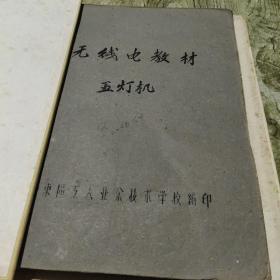 无线电教材
五灯机
东区工人业余技术学校翻印